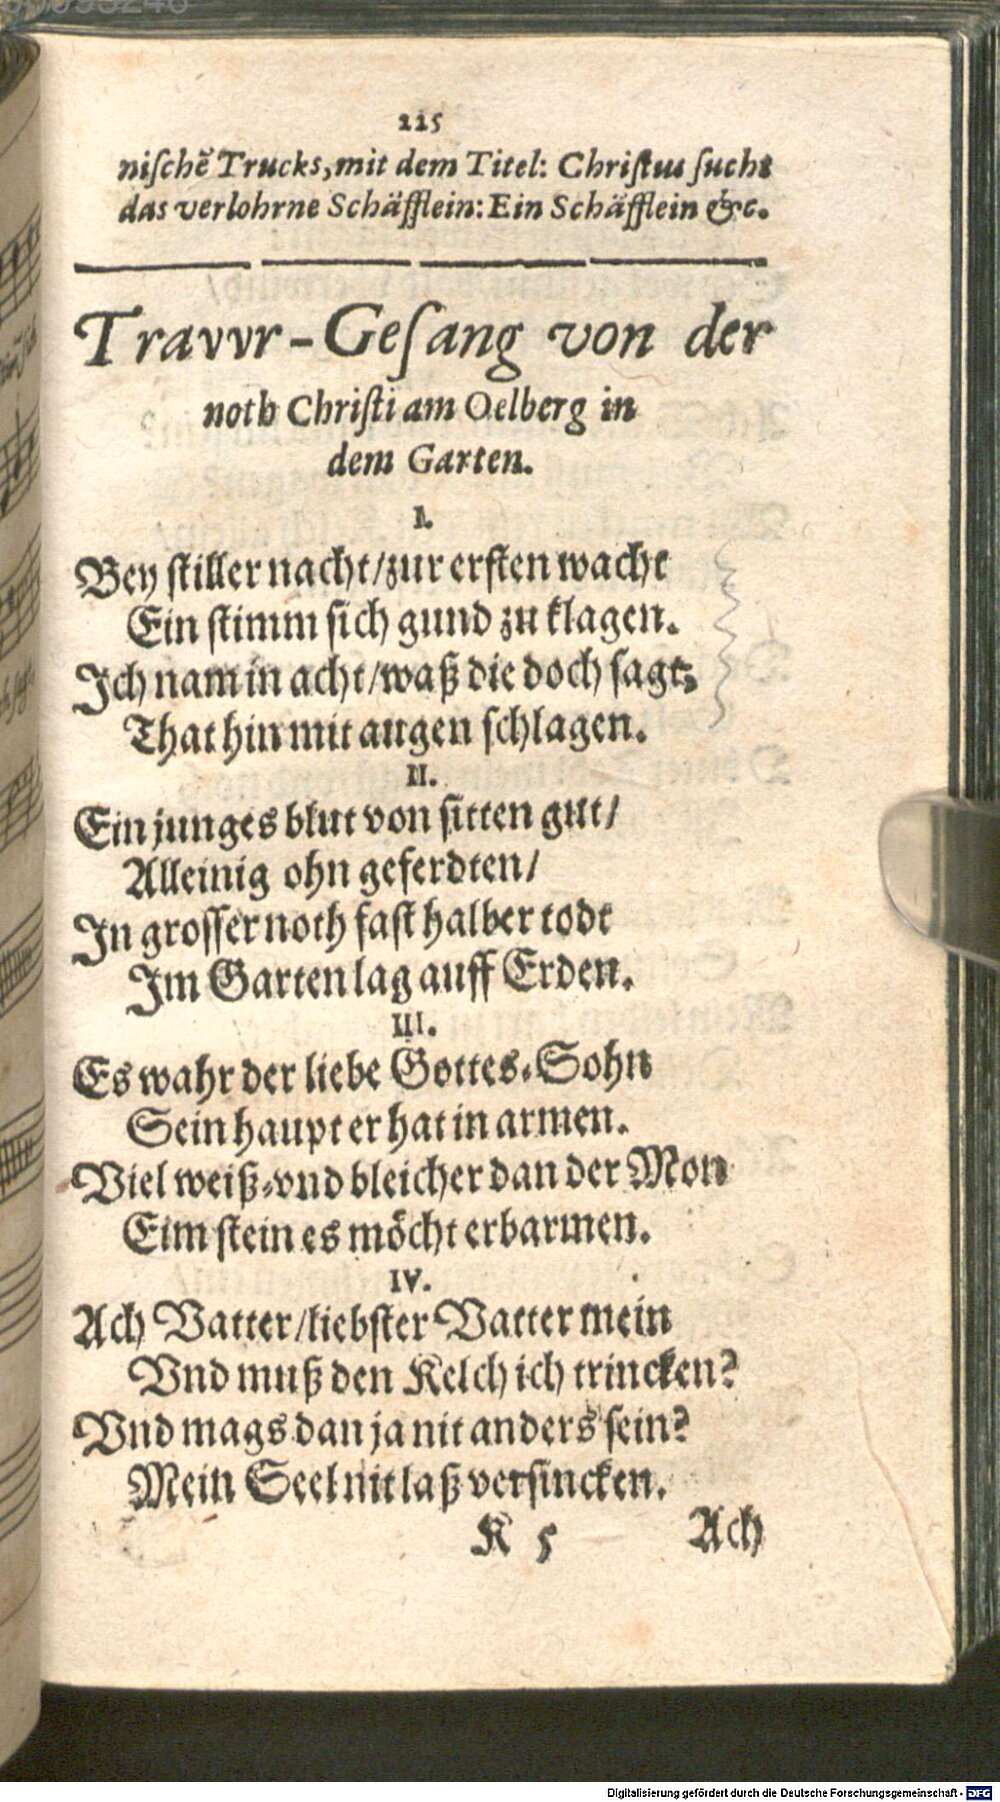 115
nischē Trucks, mit dem Titel: Christus sucht
das verlohrne Schäfflein: Ein Schäfflein &c.
Travvr-Gesang von der
noth Christi am Oelberg in
dem Garten.
I.
Bey stiller nacht / zur ersten wacht
Ein stimm sich gund zu klagen.
Ich nam in acht / waß die doch sagt;
That hin mit augen schlagen.
II.
Ein junges blut von sitten gut /
Alleinig ohn geferdten /
In grosser noth fast halber todt
Im Garten lag auff Erden.
III.
Es wahr der liebe Gottes-Sohn
Sein haupt er hat in armen.
Viel weiß-vnd bleicher dan der Mon
Eim stein es möcht erbarmen.
IV.
Ach Vatter / liebster Vatter mein
Vnd muß den Kelch ich trincken?
Vnd mags dan ja nit anders sein?
Mein Seel nit laß versincken.
K 5 Ach
Digitalisierung gefördert durch die Deutsche Forschungsgemeinschaft - DFG